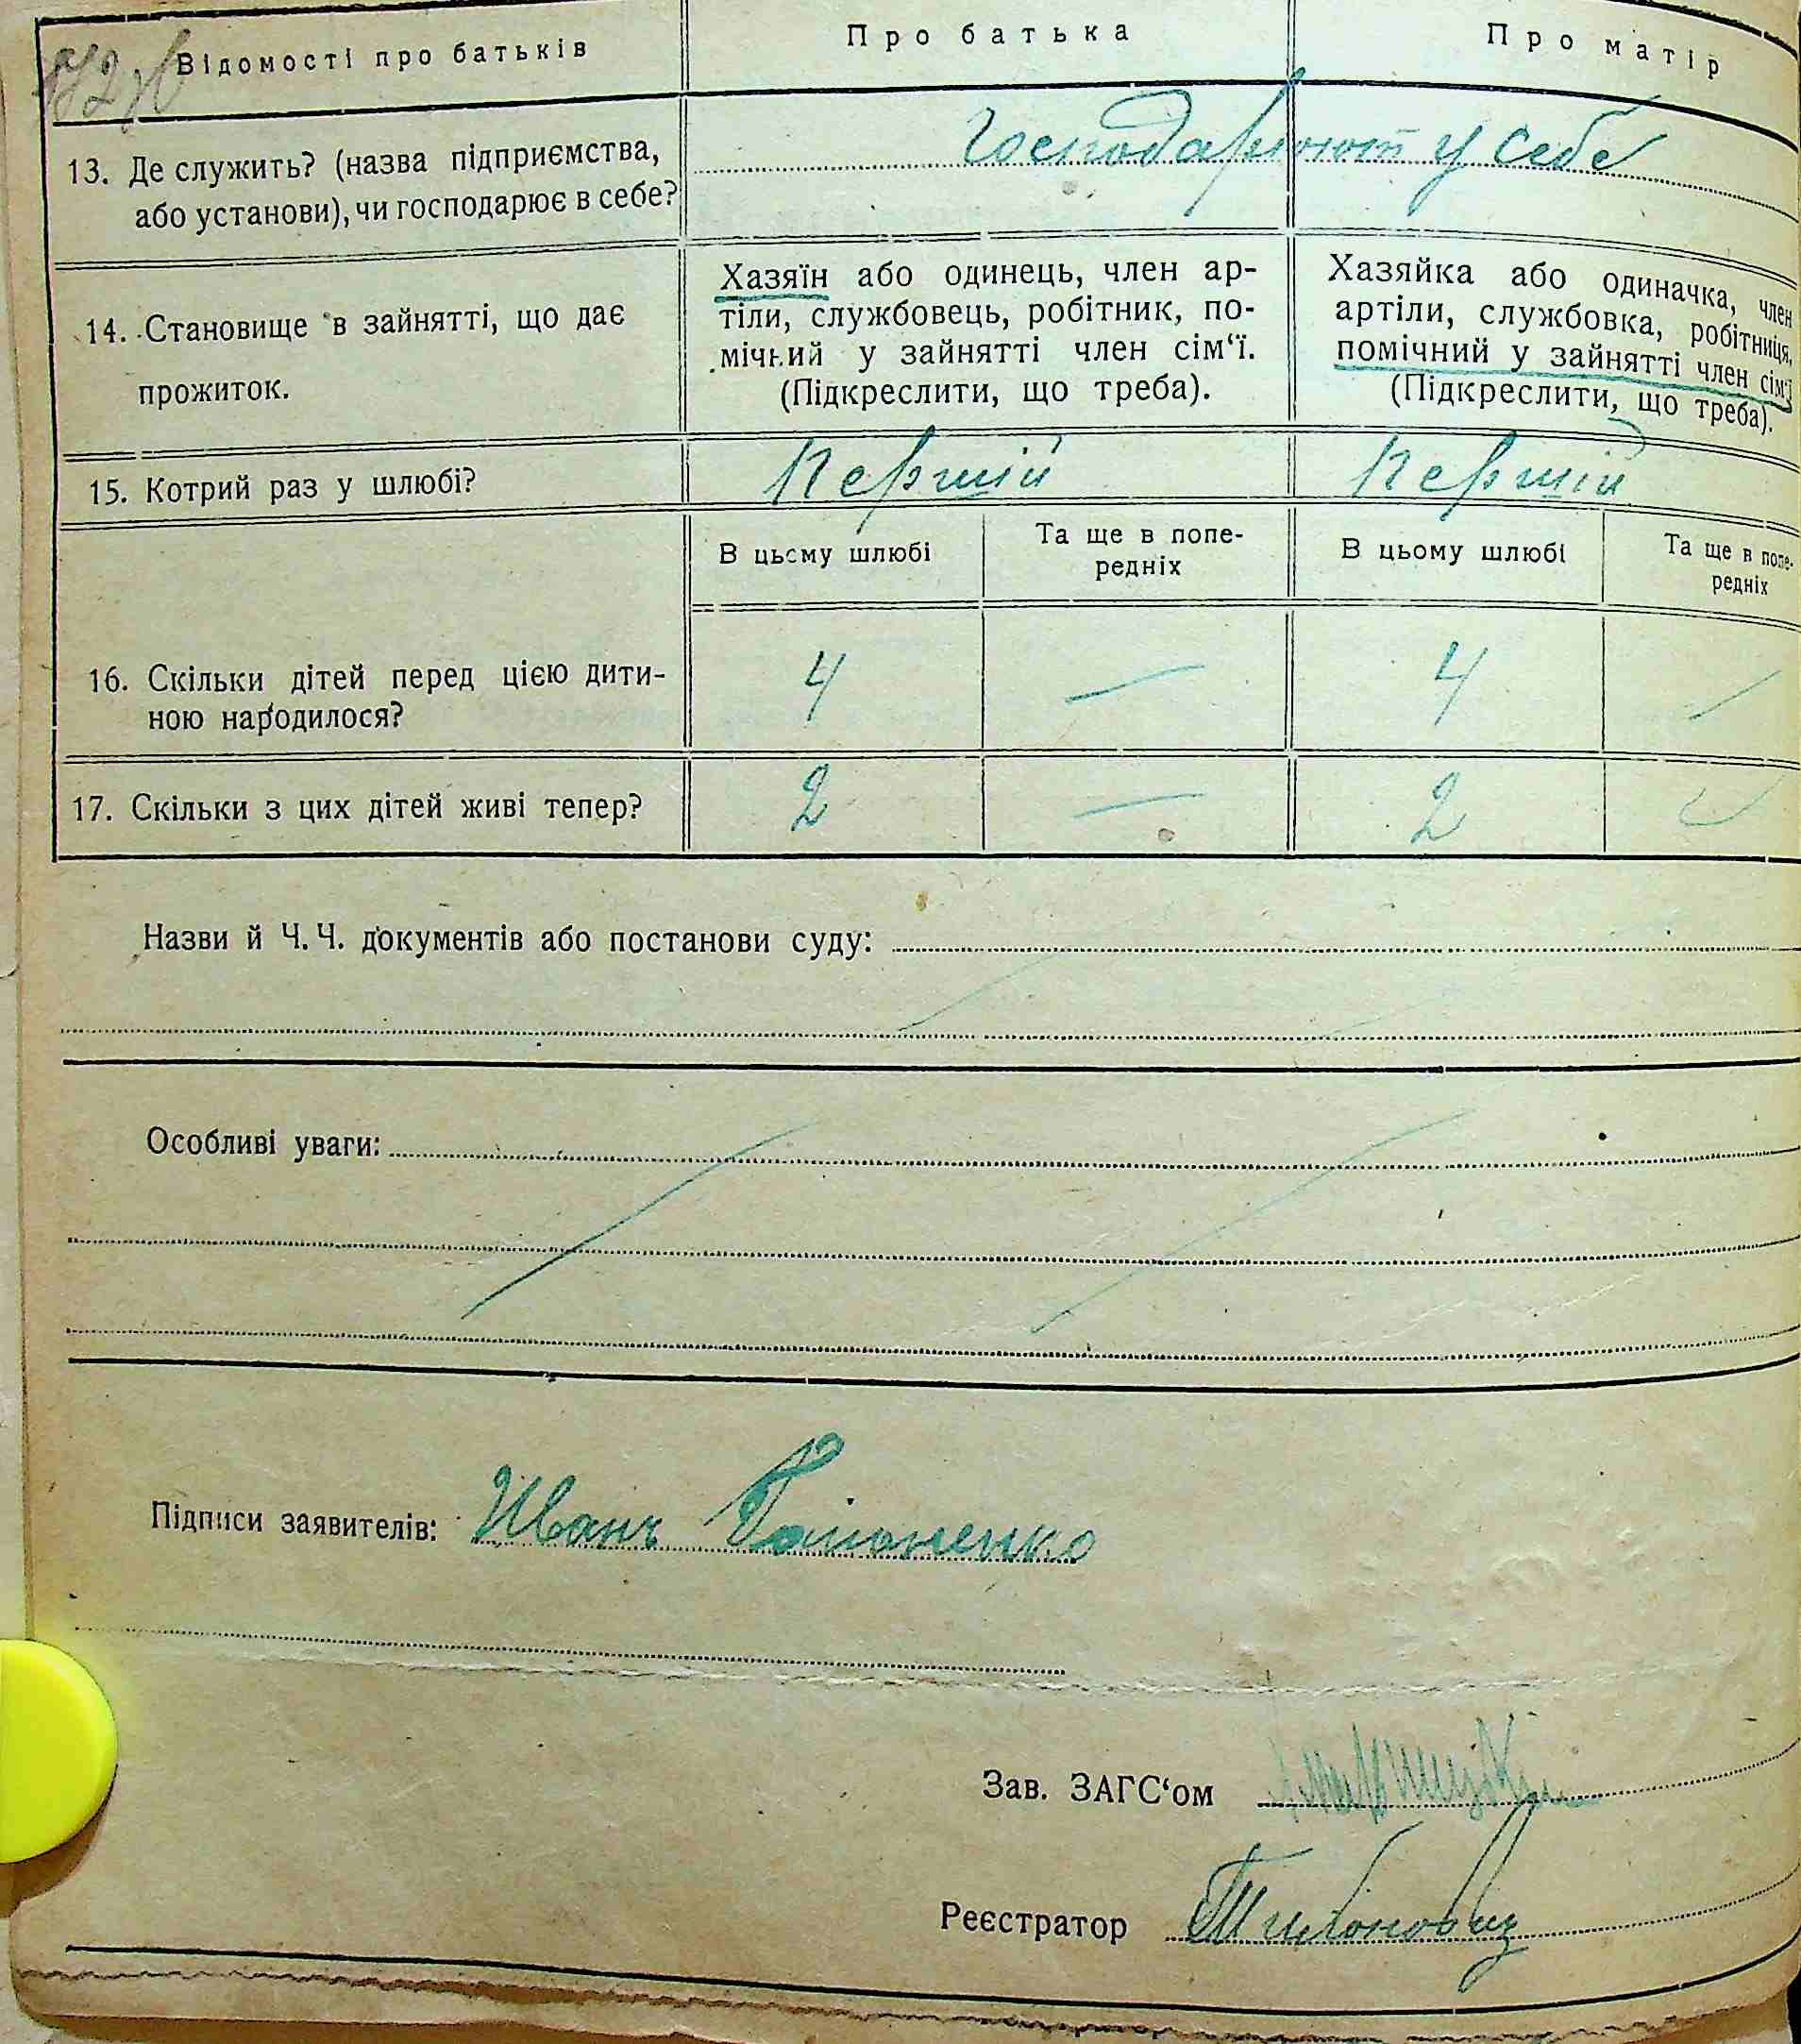 Відомості про батьків
Про батька
Про матір
13. Де служить? (назва підприємства,
або установи), чи господарює в себе?
Господарюют у себе
14. Становище в зайнятті, що дає
прожиток.
Хазяїн або одинець, член ар-
тіли, службовець, робітник, по-
мічний у зайнятті член сім‘ї.
(Підкреслити, що треба).
Хазяйка або одиначка, член
артіли, службовка, робітниця,
помічний у зайнятті член сім‘ї
(Підкреслити, що треба).
15. Котрий раз у шлюбі?
Першій
Першій
В цьому шлюбі
Та ще в попе-
редніх
В цьому шлюбі
Та ще в попе-
редніх
16. Скільки дітей перед цією дити-
ною народилося?
4 — 4 —
17. Скільки з цих дітей живі тепер?
2 — 2
Назви й Ч. Ч. документів або постанови суду:
Особливі уваги:
Підписи заявителів: Иванъ
Зав. ЗАГС‘ом
Реєстратор